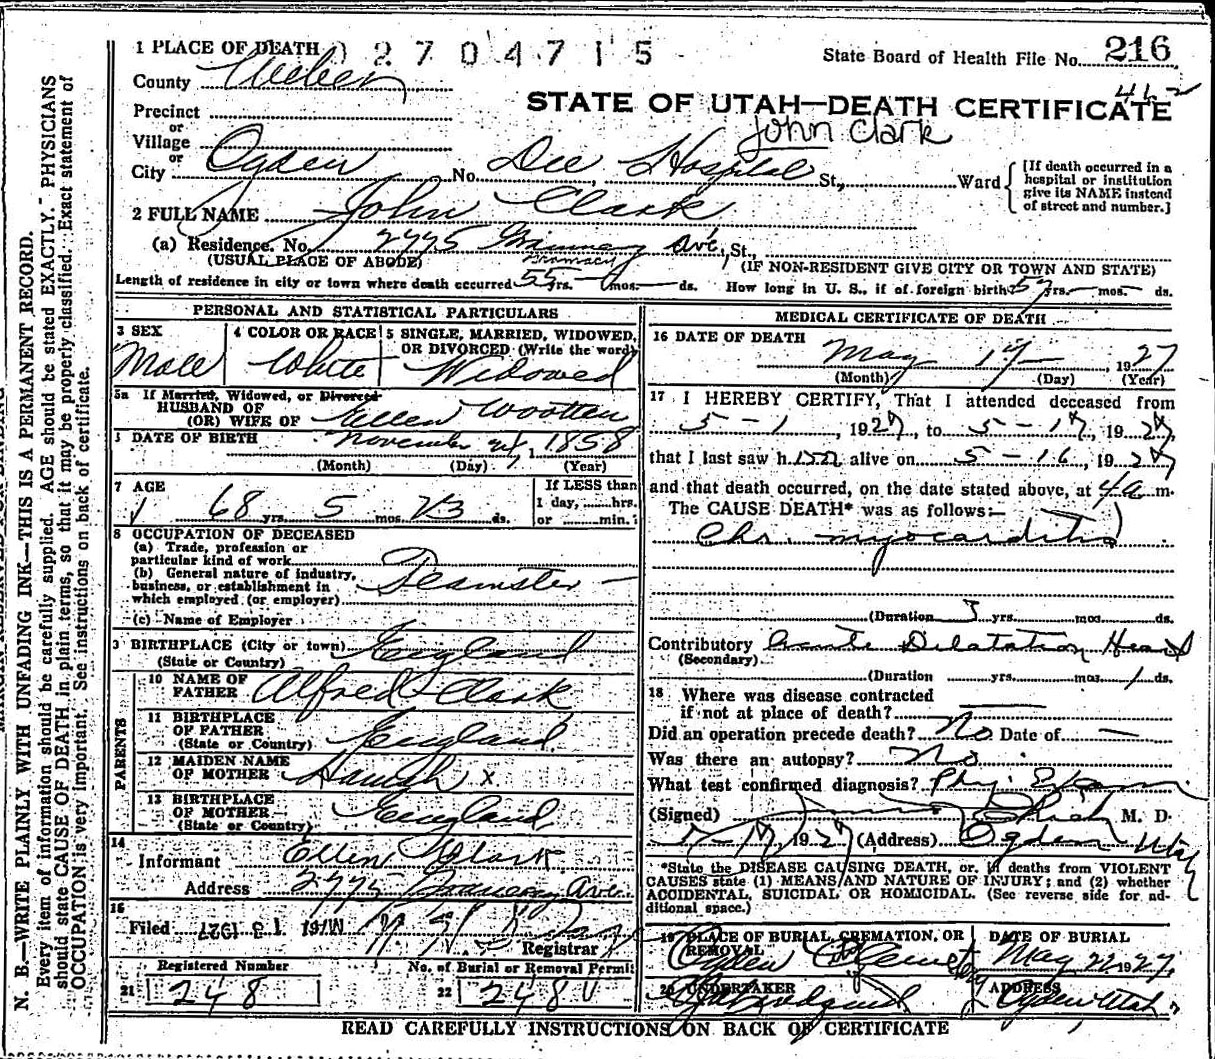 1 PLACE OF DEATH 0 2 7 0 4 7 1 5
State Board of Health File No. 216
County Weber
STATE OF UTAH—DEATH CERTIFICATE
Precinct
John Clark
or
Village
or
City Ogden No. Dee Hospital St., Ward
[If death occurred in a
hospital or institution
give its NAME instead
of street and number.]
2 FULL NAME John Clark
(a) Residence. No. Ave, St.,
(USUAL PLACE OF ABODE)
(IF NON-RESIDENT GIVE CITY OR TOWN AND STATE)
Length of residence in city or town where death occurred 55 yrs. mos. ds. How long in U. S., if of foreign birth? yrs. mos. ds.
PERSONAL AND STATISTICAL PARTICULARS
3 SEX
Male
4 COLOR OR RACE
White
5 SINGLE, MARRIED, WIDOWED,
OR DIVORCED (Write the word)
Widowed
5a If Married, Widowed, or Divorced
HUSBAND OF
(OR) WIFE OF Ellen Wootten
DATE OF BIRTH November 24, 1858
(Month) (Day) (Year)
7 AGE
68 yrs. 5 mos. 23 ds.
If LESS than
1 day, hrs.
or min.?
8 OCCUPATION OF DECEASED
(a) Trade, profession or
particular kind of work
(b) General nature of industry,
business, or establishment in
which employed (or employer)
Teamster
(c) Name of Employer
9 BIRTHPLACE (City or town)
(State or Country)
England
PARENTS
10 NAME OF
FATHER Alfred Clark
11 BIRTHPLACE
OF FATHER
(State or Country) England
12 MAIDEN NAME
OF MOTHER Hannah x
13 BIRTHPLACE
OF MOTHER
(State or Country) England
14
Informant Ellen Clark
Address Ave
15
Filed MAY 18 1927
Registrar
Registered Number
21 248
No. of Burial or Removal Permit
22 248
MEDICAL CERTIFICATE OF DEATH
16 DATE OF DEATH
May 17, 1927
(Month) (Day) (Year)
17 I HEREBY CERTIFY, That I attended deceased from
5-1, 1927, to 5-17, 1927,
that I last saw him alive on 5-16, 1927
and that death occurred, on the date stated above, at 4a m.
The CAUSE DEATH* was as follows:—
Chr. myocarditis
(Duration yrs. mos. ds.
Contributory Acute Dilatation Heart
(Secondary)
(Duration yrs. mos. 1 ds.
18 Where was disease contracted
if not at place of death?
Did an operation precede death? No Date of —
Was there an autopsy? No
What test confirmed diagnosis? Phy. Exam
(Signed) M. D.
5-17, 1927 (Address) Ogden Utah
*State the DISEASE CAUSING DEATH, or, in deaths from VIOLENT
CAUSES state (1) MEANS AND NATURE OF INJURY; and (2) whether
ACCIDENTAL, SUICIDAL OR HOMICIDAL. (See reverse side for ad-
ditional space.)
19 PLACE OF BURIAL, CREMATION, OR
REMOVAL
Ogden City Cemetery
DATE OF BURIAL
May 22 1927
20 UNDERTAKER
ADDRESS
Ogden Utah
READ CAREFULLY INSTRUCTIONS ON BACK OF CERTIFICATE
N. B.—WRITE PLAINLY WITH UNFADING INK—THIS IS A PERMANENT RECORD.
Every item of information should be carefully supplied. AGE should be stated EXACTLY. PHYSICIANS
should state CAUSE OF DEATH in plain terms, so that it may be properly classified. Exact statement of
OCCUPATION is very important. See instructions on back of certificate.